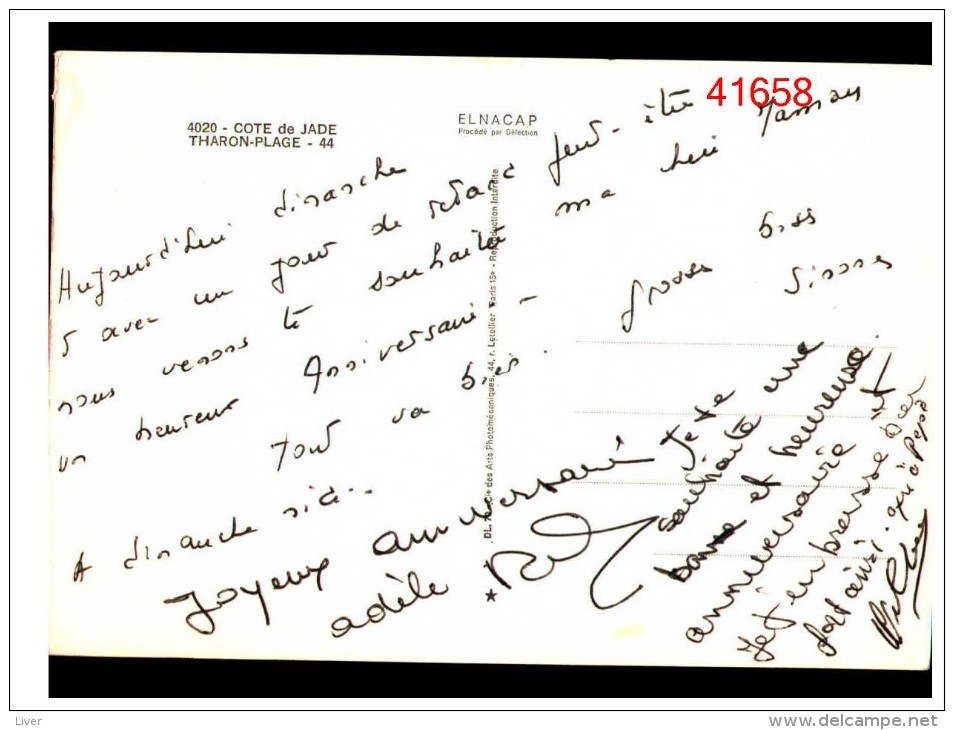 41658
4020 - COTE de JADE
THARON-PLAGE - 44
ELNACAP
Procédé par Sélection
DL. Cie des Arts Photomécaniques, 44, r. Letellier Paris 15e - Reproduction Interdite
Aujourd'hui dimanche
5 avec un jour de retard peut-être
nous venons te souhaiter ma chère Maman
un heureux Anniversaire -
Tout va bien. grosses bises
Simone
A dimanche
Joyeux anniversaire
adèle
Je te
souhaite une
bonne et heureuse
anniversaire
Je t'embrasse bien
fort ainsi qu'à Pépé
Liver
www.delcampe.net